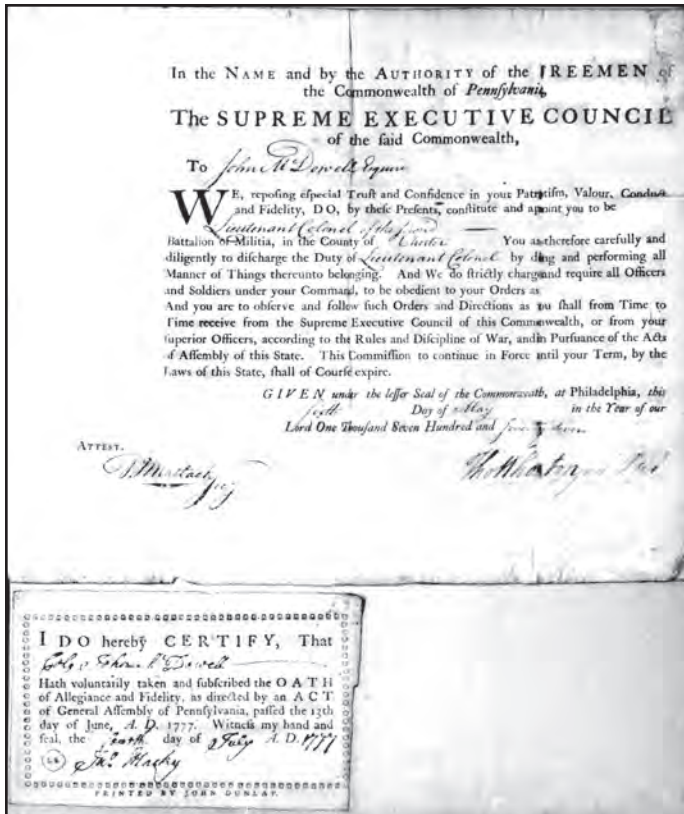 In the NAME and by the AUTHORITY of the FREEMEN of
the Commonwealth of Pennſylvania,
The SUPREME EXECUTIVE COUNCIL
of the ſaid Commonwealth,
To John McDowell Esquire
WE, repoſing eſpecial Truſt and Confidence in your Patriotiſm, Valour, Conduct
and Fidelity, DO, by theſe Preſents, conſtitute and appoint you to be
Lieutenant Colonel of the
Battalion of Militia, in the County of Chester You are therefore carefully and
diligently to diſcharge the Duty of Lieutenant Colonel by doing and performing all
Manner of Things thereunto belonging. And We do ſtrictly charge and require all Officers
and Soldiers under your Command, to be obedient to your Orders as
And you are to obſerve and follow ſuch Orders and Directions as you ſhall from Time to
Time receive from the Supreme Executive Council of this Commonwealth, or from your
ſuperior Officers, according to the Rules and Diſcipline of War, and in Purſuance of the Acts
of Aſſembly of this State. This Commiſſion to continue in Force until your Term, by the
Laws of this State, ſhall of Courſe expire.
GIVEN under the leſſer Seal of the Commonwealth, at Philadelphia, this
Day of May in the Year of our
Lord One Thouſand Seven Hundred and seventy seven
ATTEST.
I DO hereby CERTIFY, That
John McDowell
Hath voluntarily taken and ſubſcribed the OATH
of Allegiance and Fidelity, as directed by an ACT
of General Aſſembly of Pennſylvania, paſſed the 13th
day of June, A. D. 1777. Witneſs my hand and
ſeal, the day of July A. D. 1777
Jno Mackey
PRINTED BY JOHN DUNLAP.